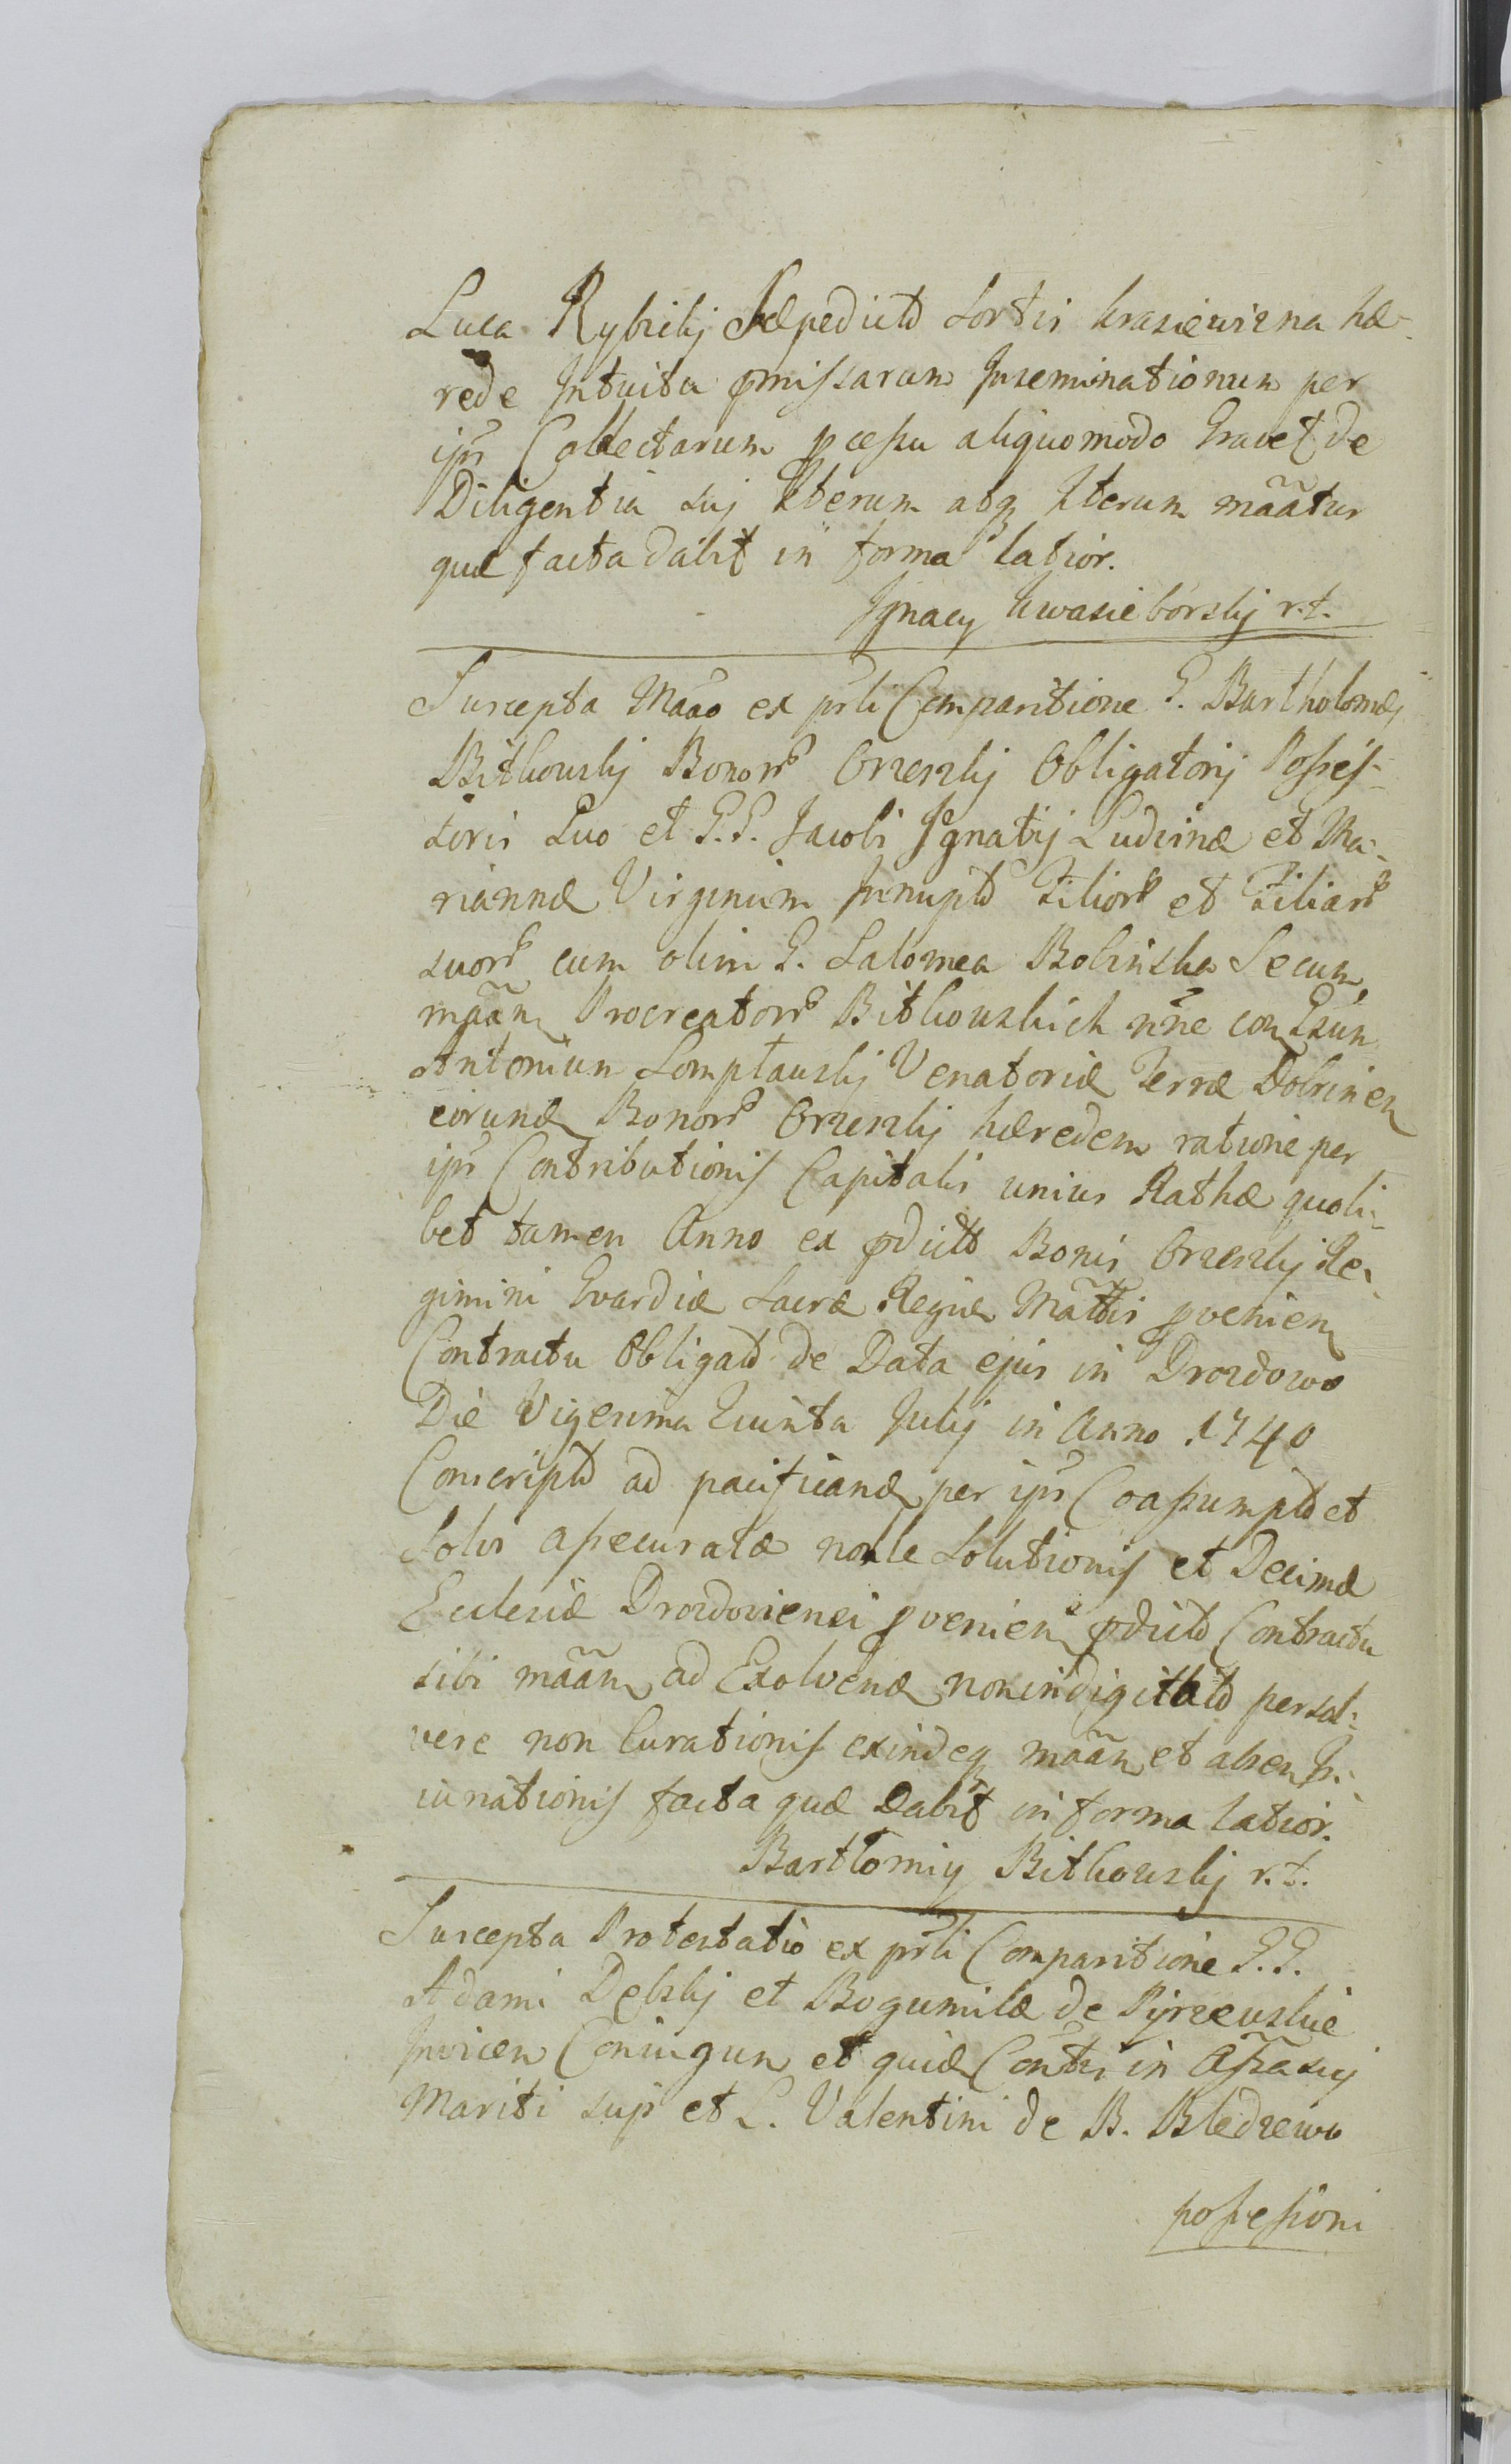 Luca Rybickij Sæpedicto Sortis Krasiewizna hæ-
rede Intuitu pmissarum Inseminationum per
ips Collectarum pcessu aliquomodo Gravet de
Diligentia sui Iterum atq Iterum maãtur
quæ facta dabit in forma latior.
Ignacy Kwasieborskij r.t.
Suscepta Maão ex prsli Comparitione G. Bartholomæj
Bitkowskij Bonorꝝ Orzeszkij Obligatorij Posses-
soris Suo et G.G. Jacobi Ignatij Ludvinæ et Ma-
riannæ Virginum Innupto Filiorꝝ et Filiarꝝ
suorꝝ cum olim G. Salomea Bobinska Secum
maãn Procreatorꝝ Bitkowskich nne con Gsun
Antonium Somplawskij Venatoriæ Terræ Dobrinen
eorund Bonorꝝ Orzeszkij hæredem ratione per
ips Contributionis Capitalis unius Rathæ quoli-
bet tamen Anno ex pdicto Bonis Orzeszkij Re-
gimini Gvardiæ Sacræ Regiæ Mattis pvenien
Contractu Obligato de Data ejus in Drozdowo
Die Vigesima Quinta Julij in Anno 1740
Conscripto ad pacificand per ips Coassumpto et
Solvi assecuratæ nolle Solutionis et Decimæ
Ecclesiæ Drozdoviensi pvenien pdicto Contractu
sibi maãn ad Exolvend nonindigitato persol-
vere non Curationis exindeq maãn et absen In-
iunationis facta quæ Dabit in forma latior.
Bartłomiy Bitkowskij r.t.
Suscepta Protestatio ex prsli Comparitione G.G.
Adami Dębskij et Bogumilæ de Pijrzewskie
Invicem Coniugun et quid Contis in Assa sui
Mariti sup et L. Valentini de B. Bledzewo
possessioni